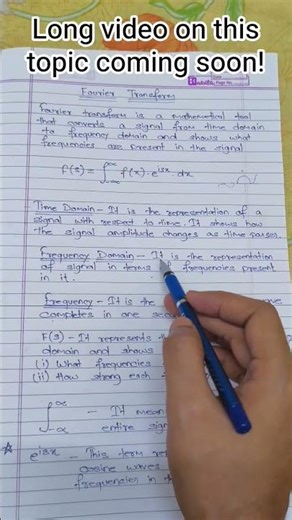 Long video on this
topic coming soon!
Fourier Transform
Fourier transform is a mathematical tool
that converts a signal from time domain
to frequency domain and shows what
frequencies are present in the signal
F(s) = ∫_{-∞}^{∞} f(x) · e^{isx} dx
Time Domain - It is the representation of a
signal with respect to time. It shows how
the signal amplitude changes as time passes.
Frequency Domain - It is the representation
of signal in terms of frequencies present
in it.
Frequency - It is the
completes in one
F(s) - It represents the
domain and shows
(i) What frequencies
(ii) How strong each
∫_{-∞}^{∞} - It
entire
☆ e^{isx} - This term
cosine waves
frequencies in